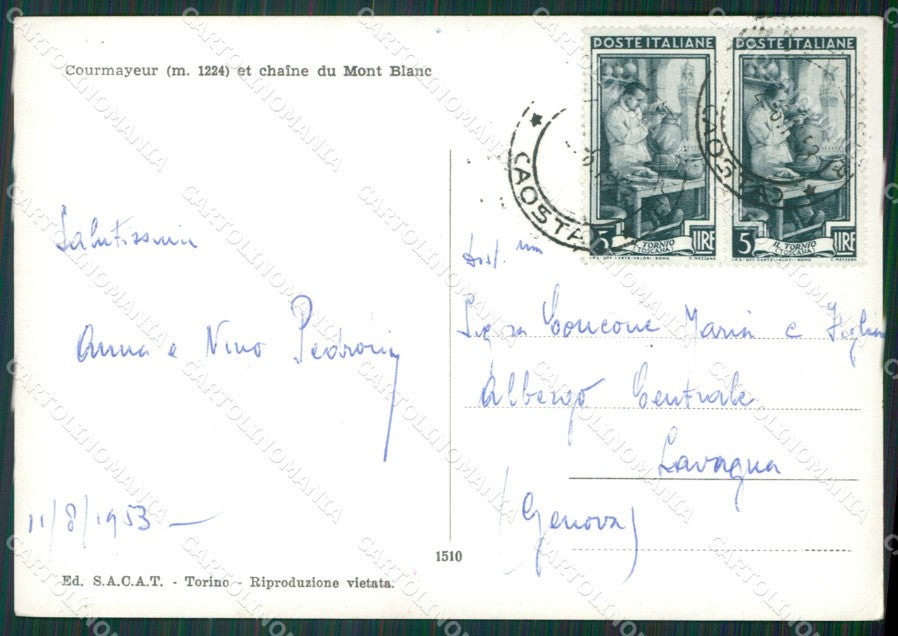 Courmayeur (m. 1224) et chaîne du Mont Blanc
POSTE ITALIANE POSTE ITALIANE
5 IL TORNIO (TOSCANA) LIRE 5 IL TORNIO (TOSCANA) LIRE
I.P.S.-OFF. CARTE-VALORI-ROMA
AOSTA
AOSTA
Salutissimi
Anna e Nino Pedroni
11/8/1953 —
Sig.ra Concone Maria e Figlia
Albergo Centrale
Lavagna
(Genova)
1510
Ed. S.A.C.A.T. - Torino - Riproduzione vietata.
CARTOLINOMANIA